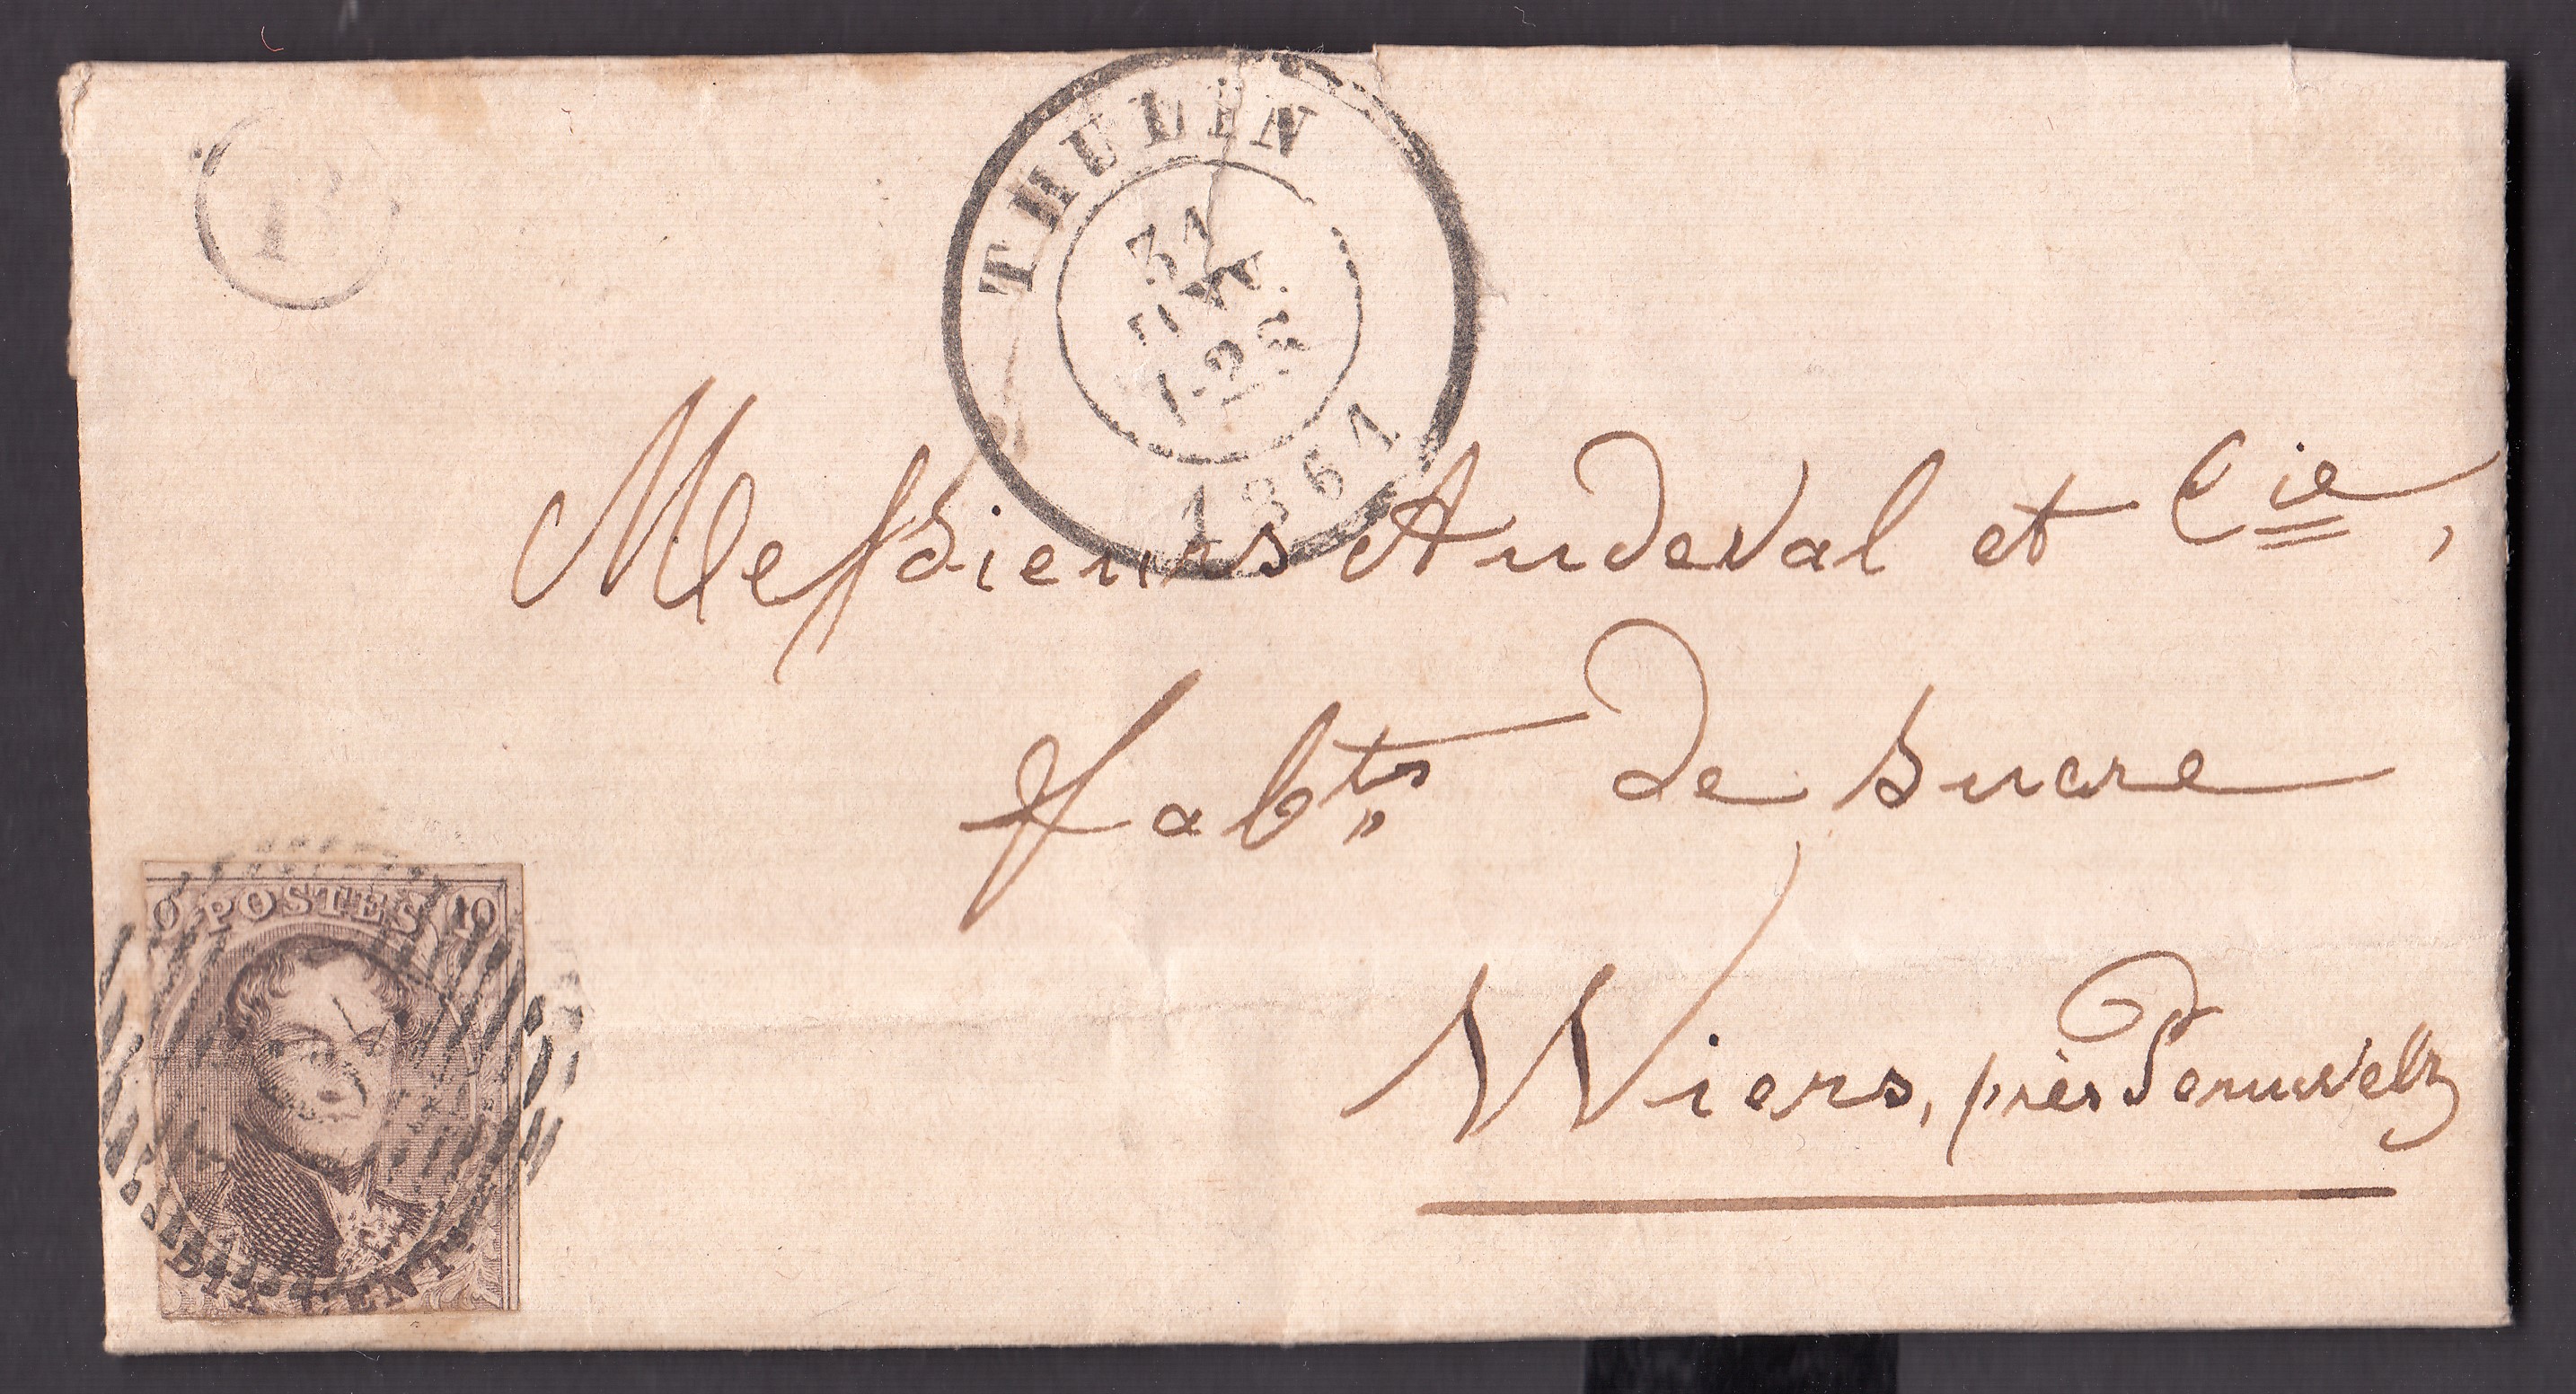 B
THULIN
31
JANV.
1861
Messieurs Andeval et Cie,
fabts de sucre
Wiers, près Peruwelz
POSTES 10
DIX CENT